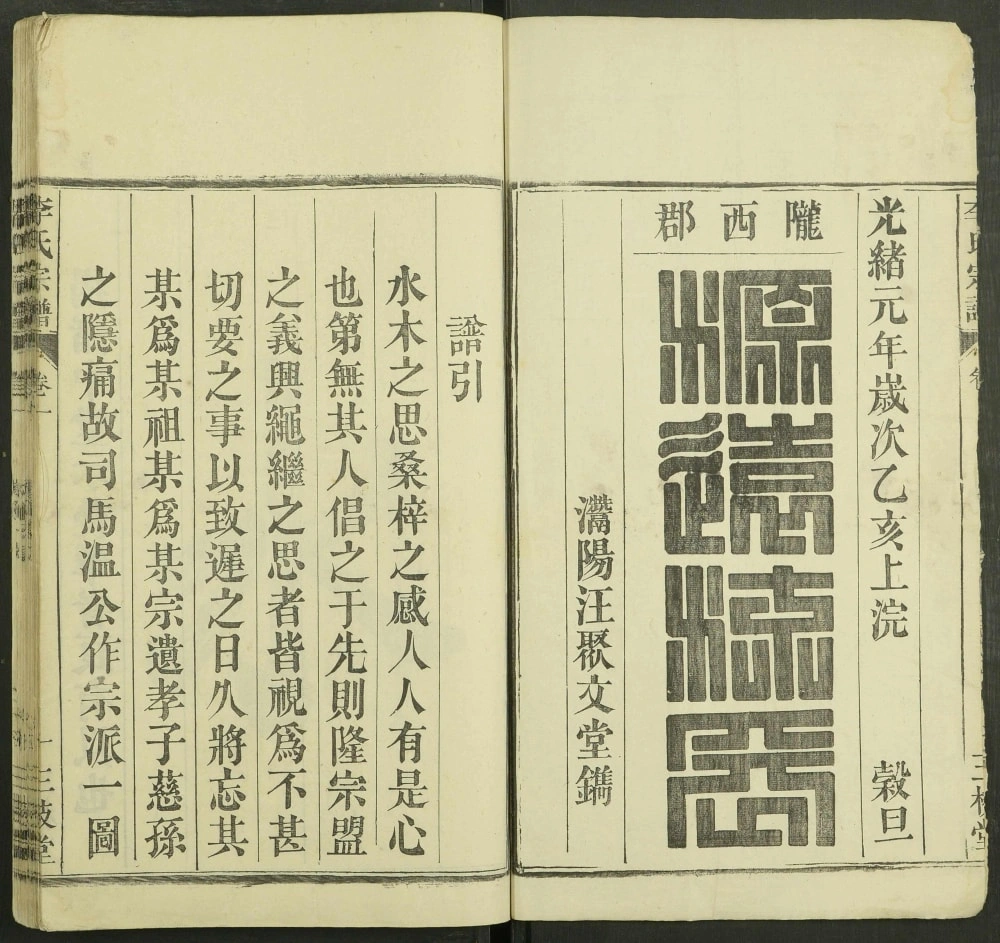 光緒元年歲次乙亥上浣　穀旦
隴西郡
源遠流長
灊陽汪聚文堂鐫
譜引
水木之思桑梓之感人人有是心
也第無其人倡之于先則隆宗盟
之義興繩繼之思者皆視爲不甚
切要之事以致遲之日久將忘其
某爲某祖某爲某宗遺孝子慈孫
之隱痛故司馬溫公作宗派一圖
李氏宗譜　卷一　一　三枝堂